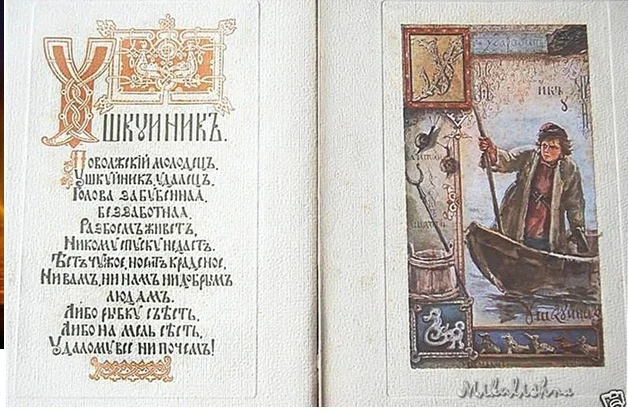 УШКУЙНИКЪ.
Поволжскій молодецъ,
Ушкуйникъ, удалецъ,
Голова забубенная,
Беззаботная,
Разбоемъ живетъ,
Никому спуску недастъ.
Ѣстъ чужое, носитъ краденое,
Ни вамъ, ни намъ ни добрымъ
людямъ.
Либо рыбку съѣсть,
Либо на мель сѣсть,
Удалому все ни почемъ!